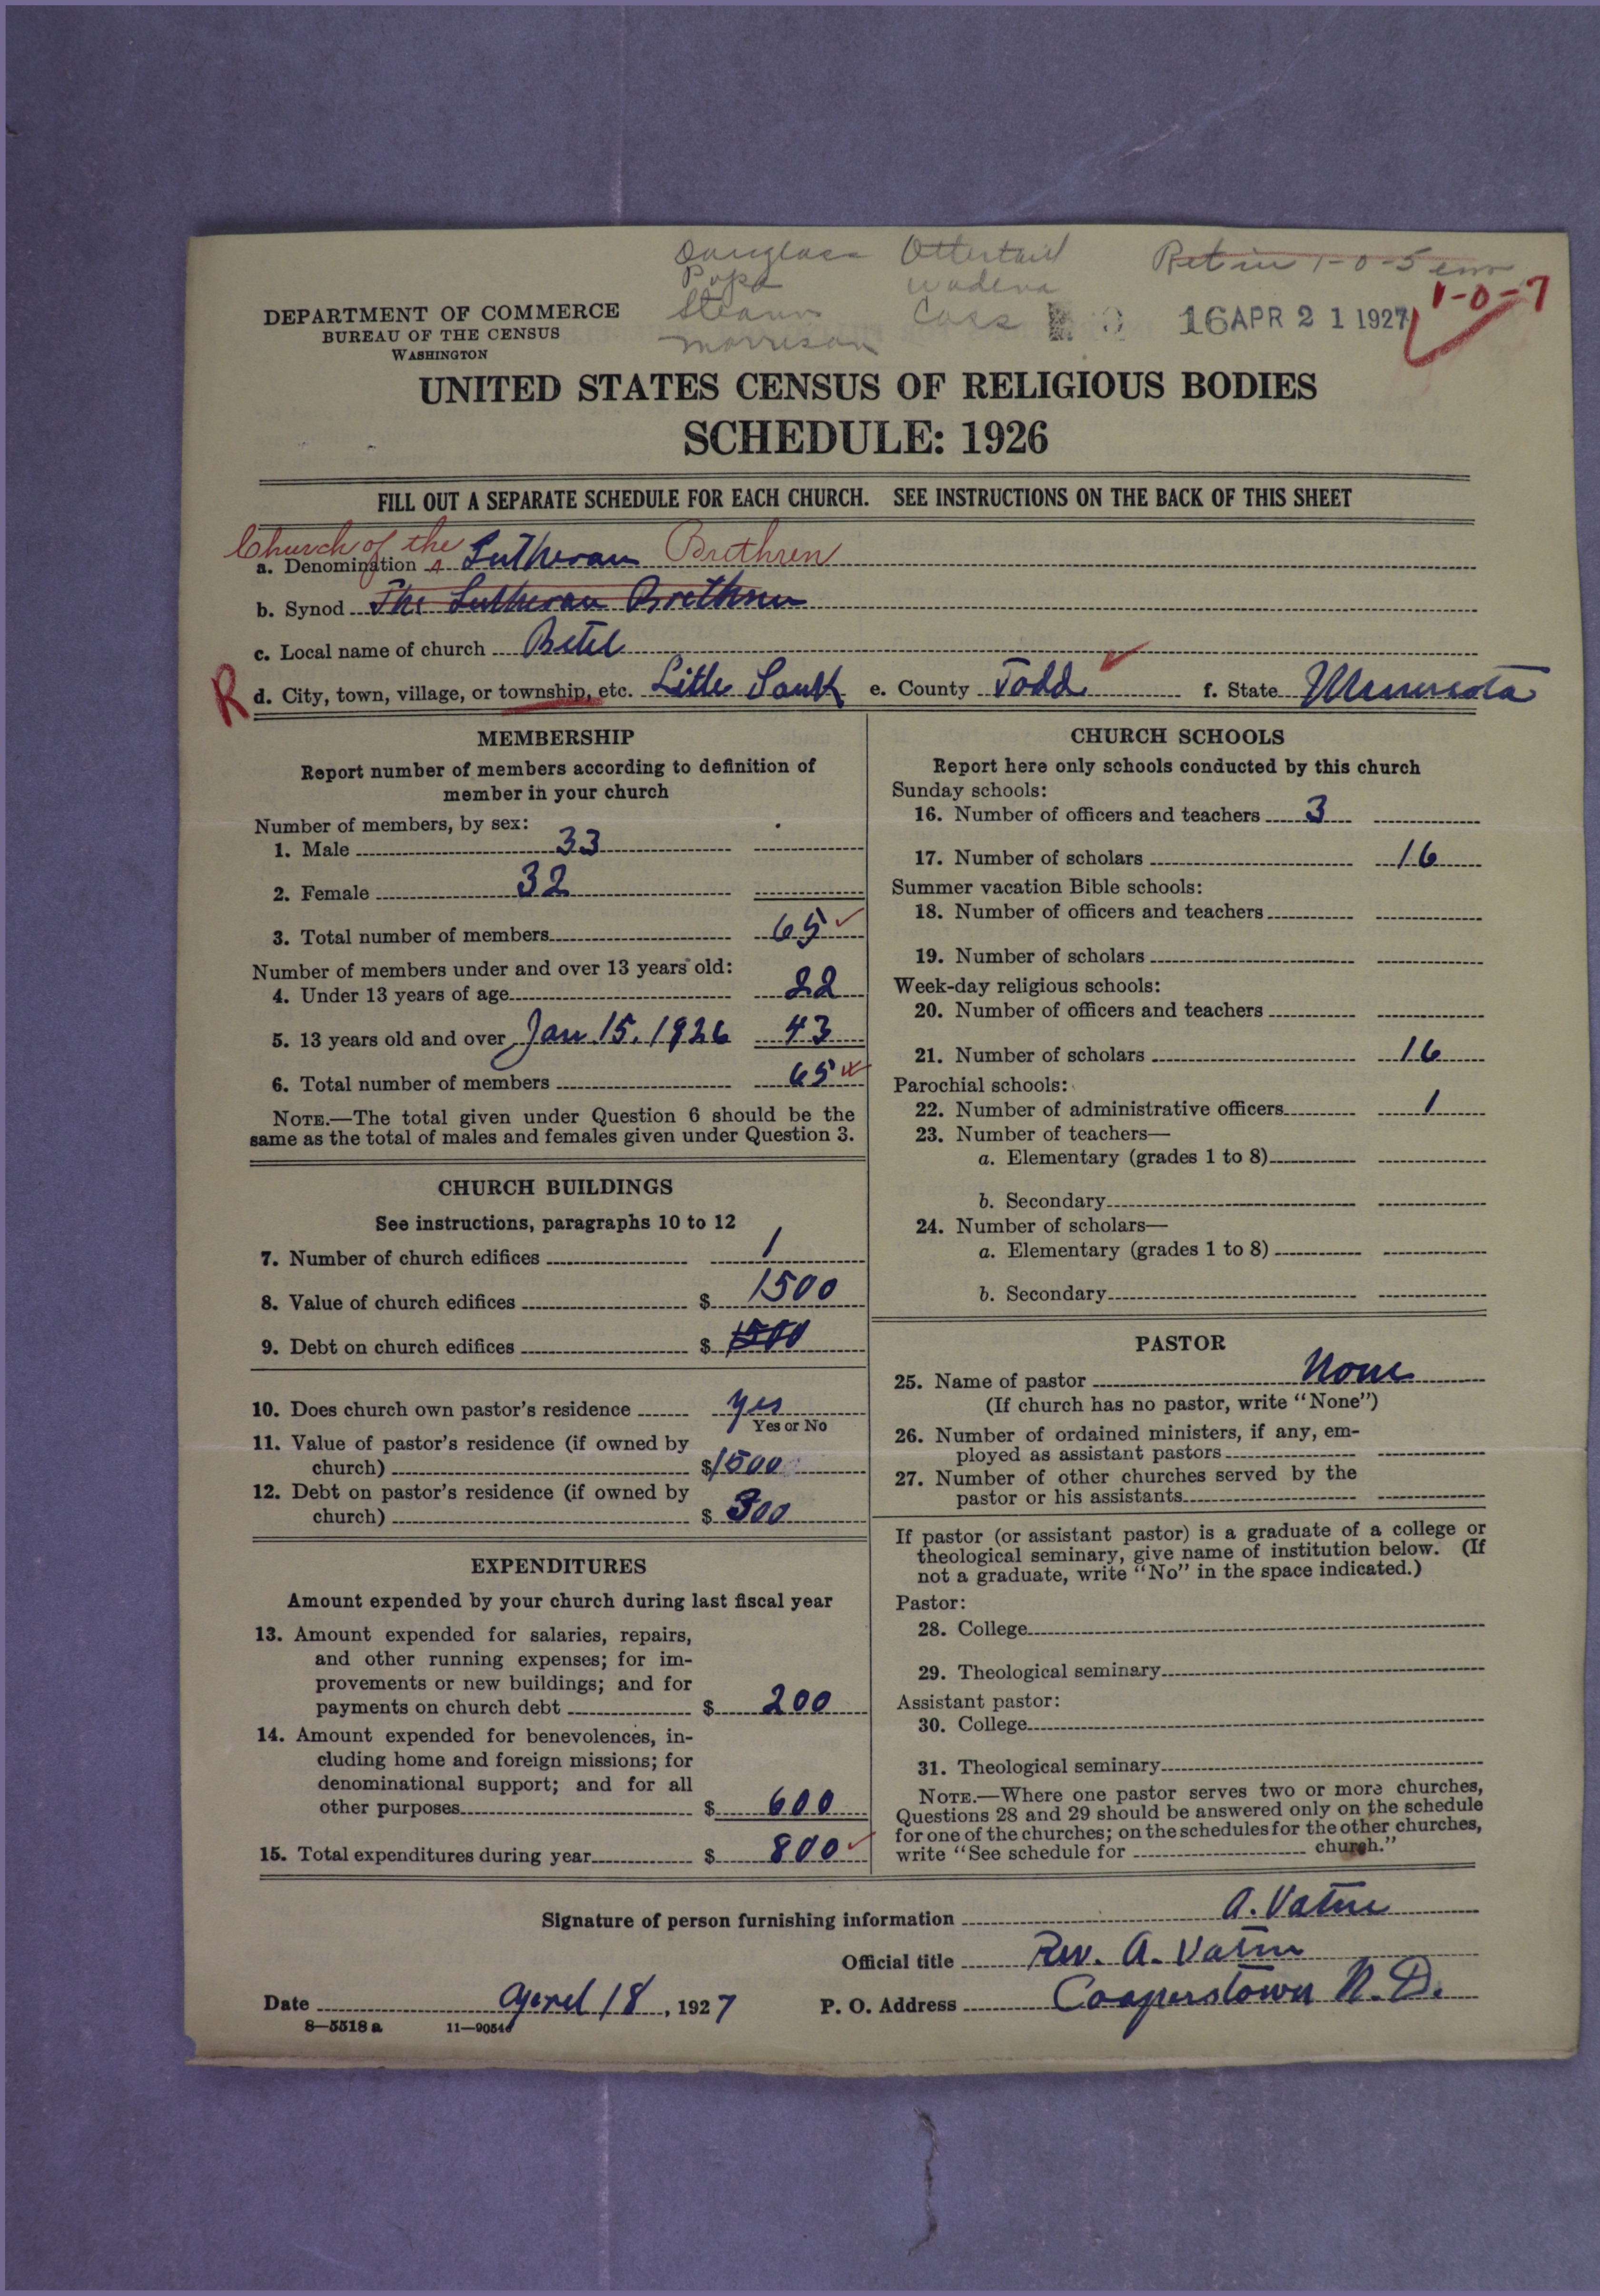 Douglas Ottertail Ret in 1-0-5
Pope Wadena 1-0-7
Stearns Cass 16 APR 21 1927
Morrison
DEPARTMENT OF COMMERCE
BUREAU OF THE CENSUS
WASHINGTON
UNITED STATES CENSUS OF RELIGIOUS BODIES
SCHEDULE: 1926
FILL OUT A SEPARATE SCHEDULE FOR EACH CHURCH. SEE INSTRUCTIONS ON THE BACK OF THIS SHEET
Church of the
a. Denomination Lutheran Brethren
b. Synod The Lutheran Brethren
c. Local name of church Betel
R d. City, town, village, or township, etc. Little Sauk e. County Todd f. State Minnesota
MEMBERSHIP
Report number of members according to definition of
member in your church
Number of members, by sex:
1. Male 33
2. Female 32
3. Total number of members 65
Number of members under and over 13 years old:
4. Under 13 years of age 22
5. 13 years old and over Jan 15, 1926 43
6. Total number of members 65
NOTE.—The total given under Question 6 should be the
same as the total of males and females given under Question 3.
CHURCH BUILDINGS
See instructions, paragraphs 10 to 12
7. Number of church edifices 1
8. Value of church edifices $ 1500
9. Debt on church edifices $ 1500
10. Does church own pastor's residence yes
Yes or No
11. Value of pastor's residence (if owned by
church) $1500
12. Debt on pastor's residence (if owned by
church) $ 300
EXPENDITURES
Amount expended by your church during last fiscal year
13. Amount expended for salaries, repairs,
and other running expenses; for im-
provements or new buildings; and for
payments on church debt $ 200
14. Amount expended for benevolences, in-
cluding home and foreign missions; for
denominational support; and for all
other purposes $ 600
15. Total expenditures during year $ 800
CHURCH SCHOOLS
Report here only schools conducted by this church
Sunday schools:
16. Number of officers and teachers 3
17. Number of scholars 16
Summer vacation Bible schools:
18. Number of officers and teachers
19. Number of scholars
Week-day religious schools:
20. Number of officers and teachers
21. Number of scholars 16
Parochial schools:
22. Number of administrative officers 1
23. Number of teachers—
a. Elementary (grades 1 to 8)
b. Secondary
24. Number of scholars—
a. Elementary (grades 1 to 8)
b. Secondary
PASTOR
25. Name of pastor None
(If church has no pastor, write "None")
26. Number of ordained ministers, if any, em-
ployed as assistant pastors
27. Number of other churches served by the
pastor or his assistants
If pastor (or assistant pastor) is a graduate of a college or
theological seminary, give name of institution below. (If
not a graduate, write "No" in the space indicated.)
Pastor:
28. College
29. Theological seminary
Assistant pastor:
30. College
31. Theological seminary
NOTE.—Where one pastor serves two or more churches,
Questions 28 and 29 should be answered only on the schedule
for one of the churches; on the schedules for the other churches,
write "See schedule for church."
Signature of person furnishing information A. Vatne
Official title Rev. A. Vatne
Date April 18, 1927 P. O. Address Cooperstown N. D.
8—5518 a 11—9054